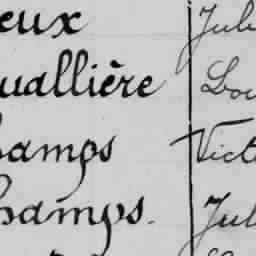 eux Jul
uallière Lou
hamps Vict
hamps. Jul